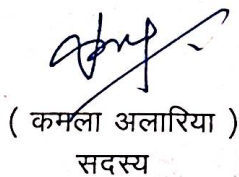 ( कमला अलारिया )
सदस्य